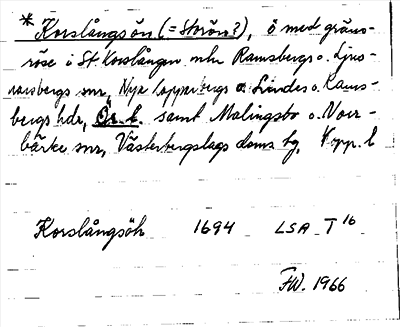 * Korslångsön (= Storön?), ö med gräns-
röse i St. Korslången mln Ramsbergs o. Ljus-
narsbergs snr, Nya Kopparbergs o. Lindes o. Rams-
bergs hdr, Ör. l. samt Malingsbo o. Norr-
bärke snr, Västerbergslags doms hg, Kopp. l
Korslångsöh 1694 LSA T 16
FW. 1966